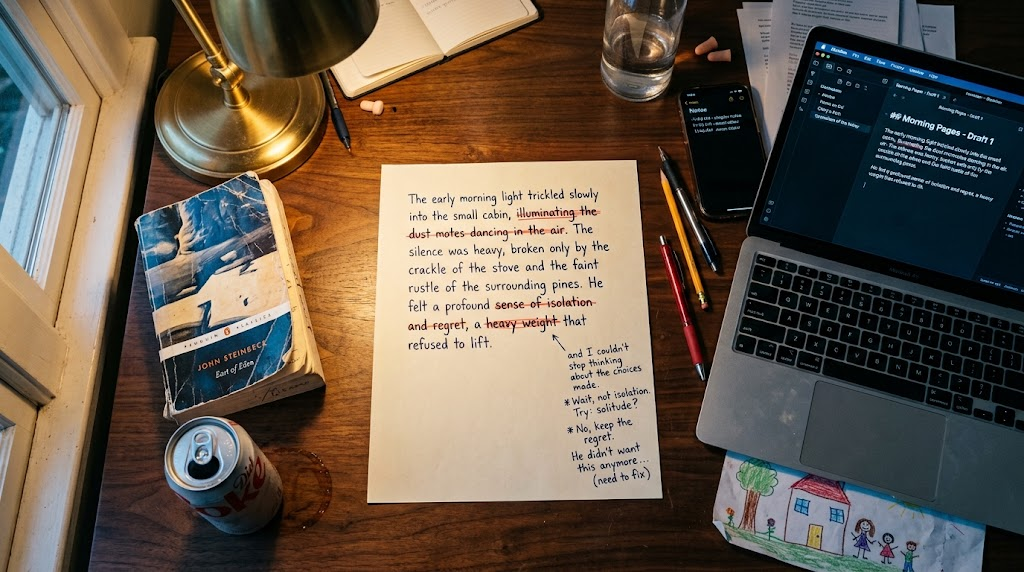 The early morning light trickled slowly
into the small cabin, illuminating the
dust motes dancing in the air. The
silence was heavy, broken only by the
crackle of the stove and the faint
rustle of the surrounding pines. He
felt a profound sense of isolation
and regret, a heavy weight that
refused to lift.
and I couldn't
stop thinking
about the choices
made.
* Wait, not isolation.
Try: solitude?
* No, keep the
regret.
He didn't want
this anymore...
(need to fix)
PENGUIN CLASSICS
JOHN STEINBECK
East of Eden
Diet
Coke
Notes
Morning Pages - Draft 1
Morning Pages - Draft 1
## Morning Pages - Draft 1
The early morning light